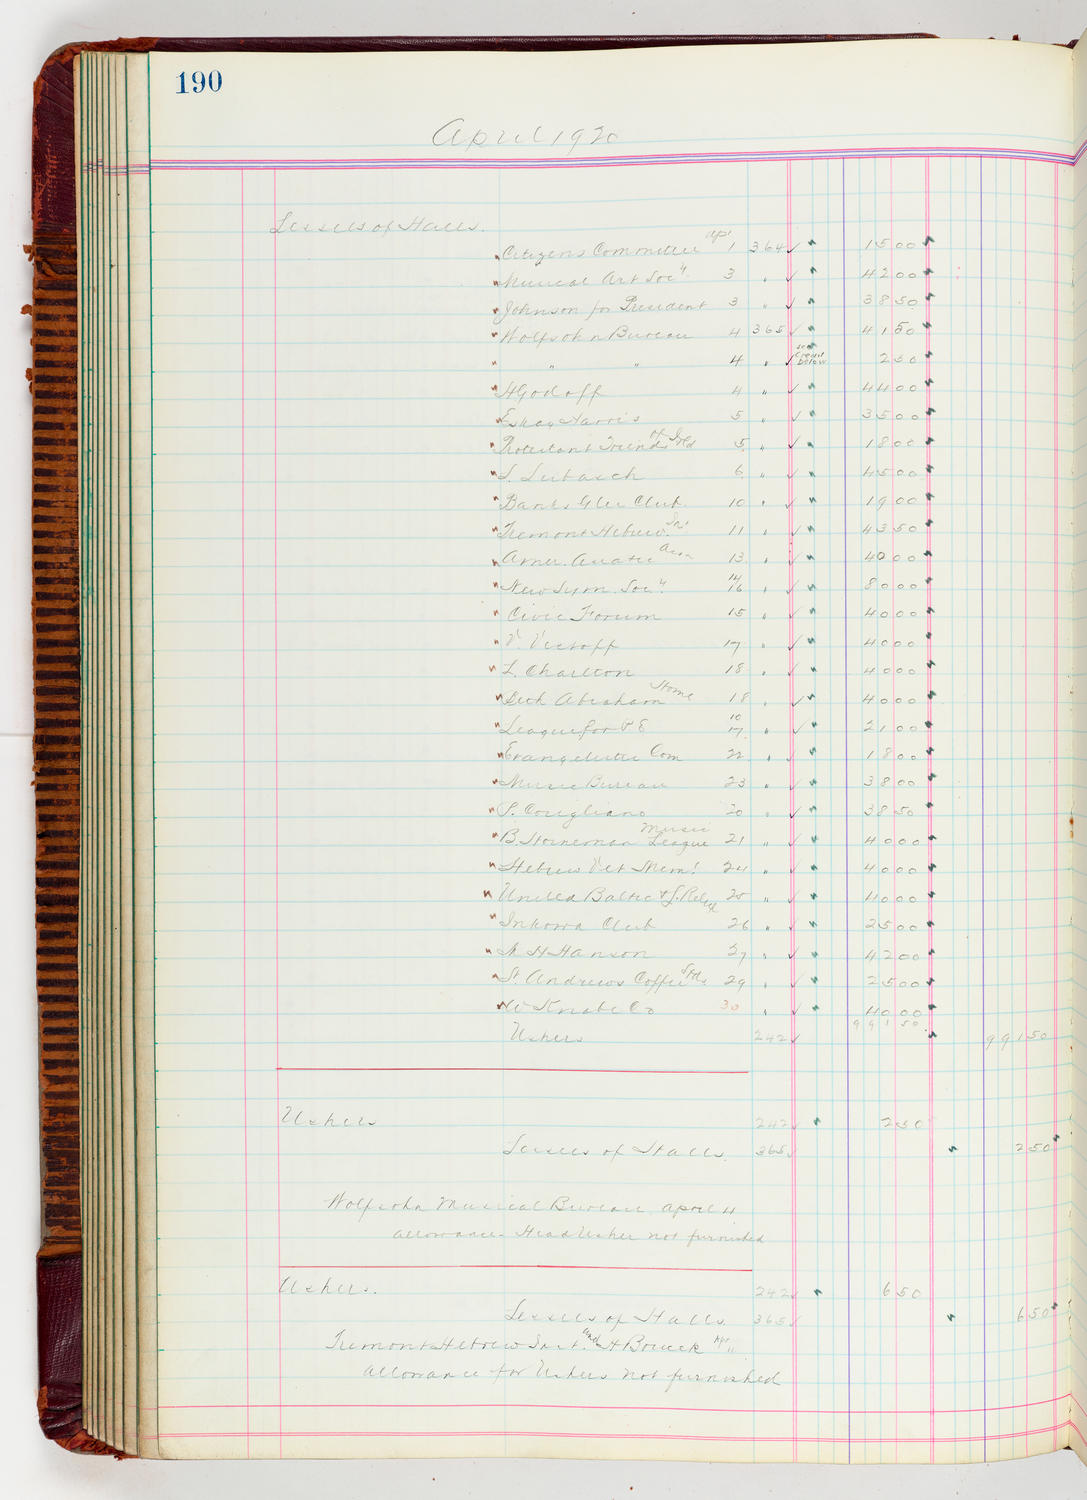 190
April 1920
Lessees of Halls.
Citizens Committee Apr 1 364 ✓ 15 00
Musical Art Socy. 3 " ✓ 42 00
Johnson for President 3 " ✓ 38 50
Wolfsohn Bureau 4 365 ✓ 41 50
" " " 4 " ✓ see credit below 2 50
H Godoff 4 " ✓ 44 00
Harris 5 " ✓ 35 00
Protestant Friends of Ireld 5 " ✓ 18 00
S. Lubasch 6 " ✓ 45 00
Banks Glee Club 10 " ✓ 19 00
Tremont Hebrew Ins 11 " ✓ 43 50
Amer. Asiatic Assn 13 " ✓ 40 00
New Sym. Socy. 14 16 " ✓ 80 00
Civic Forum 15 " ✓ 40 00
V. 17 " ✓ 40 00
L. Charlton 18 " ✓ 40 00
Beth Abraham Home 18 " ✓ 40 00
League for P E 10 17 " ✓ 21 00
Evangelistic Com 22 " ✓ 18 00
Music Bureau 23 " ✓ 38 00
S. Corigliano 20 " ✓ 38 50
B. Horneman Music League 21 " ✓ 40 00
Hebrew Vet Mem! 24 " ✓ 40 00
United Baltic & J. Relief 25 " ✓ 40 00
Inkowa Club 26 " ✓ 25 00
H Hanson 27 " ✓ 42 00
St. Andrews Coffee Stds 29 " ✓ 25 00
W Knabe Co 30 " ✓ 40 00
991 50
Ushers 242 ✓ 991 50
Ushers 242 ✓ 2 50
Lessees of Halls. 365 ✓ 2 50
Wolfsohn Musical Bureau April 4
allowance - Head Usher not furnished
Ushers. 242 ✓ 6 50
Lessees of Halls. 365 ✓ 6 50
Tremont Hebrew Inst. and H Bruck Apr 11
allowance for Ushers not furnished